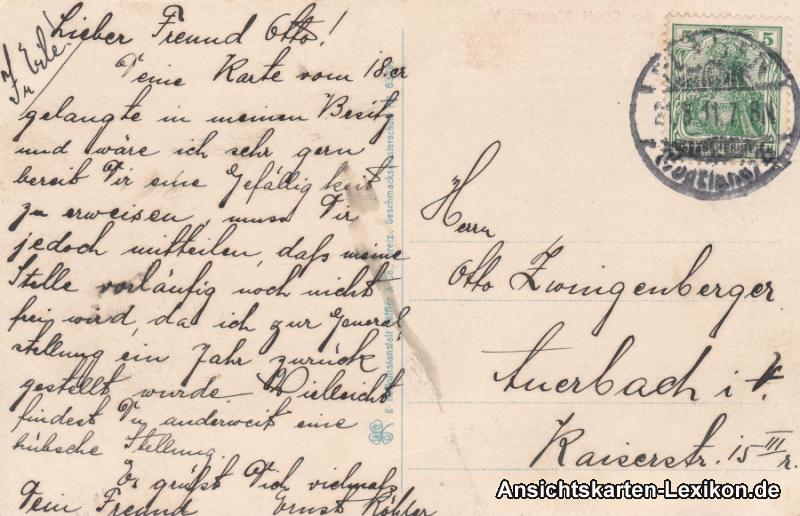 In Eile!
Lieber Freund Otto!
Deine Karte vom 18er
gelangte in meinen Besitz
und wäre ich sehr gern
bereit Dir eine Gefälligkeit
zu erweisen, muss Dir
jedoch mitteilen, daß meine
Stelle vorläufig noch nicht
frei wird, da ich zur General-
stellung ein Jahr zurück
gestellt wurde. Vielleicht
findest Du anderweit eine
hübsche Stellung.
Es grüßt Dich vielmals
Dein Freund Ernst Köhler
5
11. 7
(Vogtland)
Herrn
Otto Zwingenberger
Auerbach i. V.
Kaiserstr. 15 III r.
Ansichtskarten-Lexikon.de